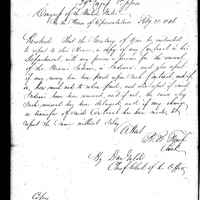 29th Cong. 1st Sess.
Congress of the United States
In the House of Representatives, Feby 27. 1846
Resolved That the Secretary of War be instructed
to report to this House, a copy of any Contract in his
Department, with any person or persons for the removal
of the Miami Indians, in Indiana; and also report
if any money has been paid upon such Contract, and if
so, how much and to whom paid; and if said
Indians have been removed, and if not, the cause why
such removal has been delayed; and if any change
or transfer of said Contract has been made, to
report the same without delay.
Attest
B. B. French
Clerk
By Dan Gold
Chief Clerk of the Office
Copy